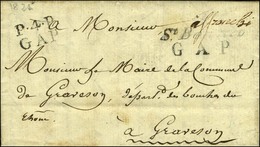 1826
à Monsieur affranchi
P.4.P.
GAP
GAP
Monsieur le Maire de la Commune
de Graveson, départ. des bouches du
Rhône,
à Graveson